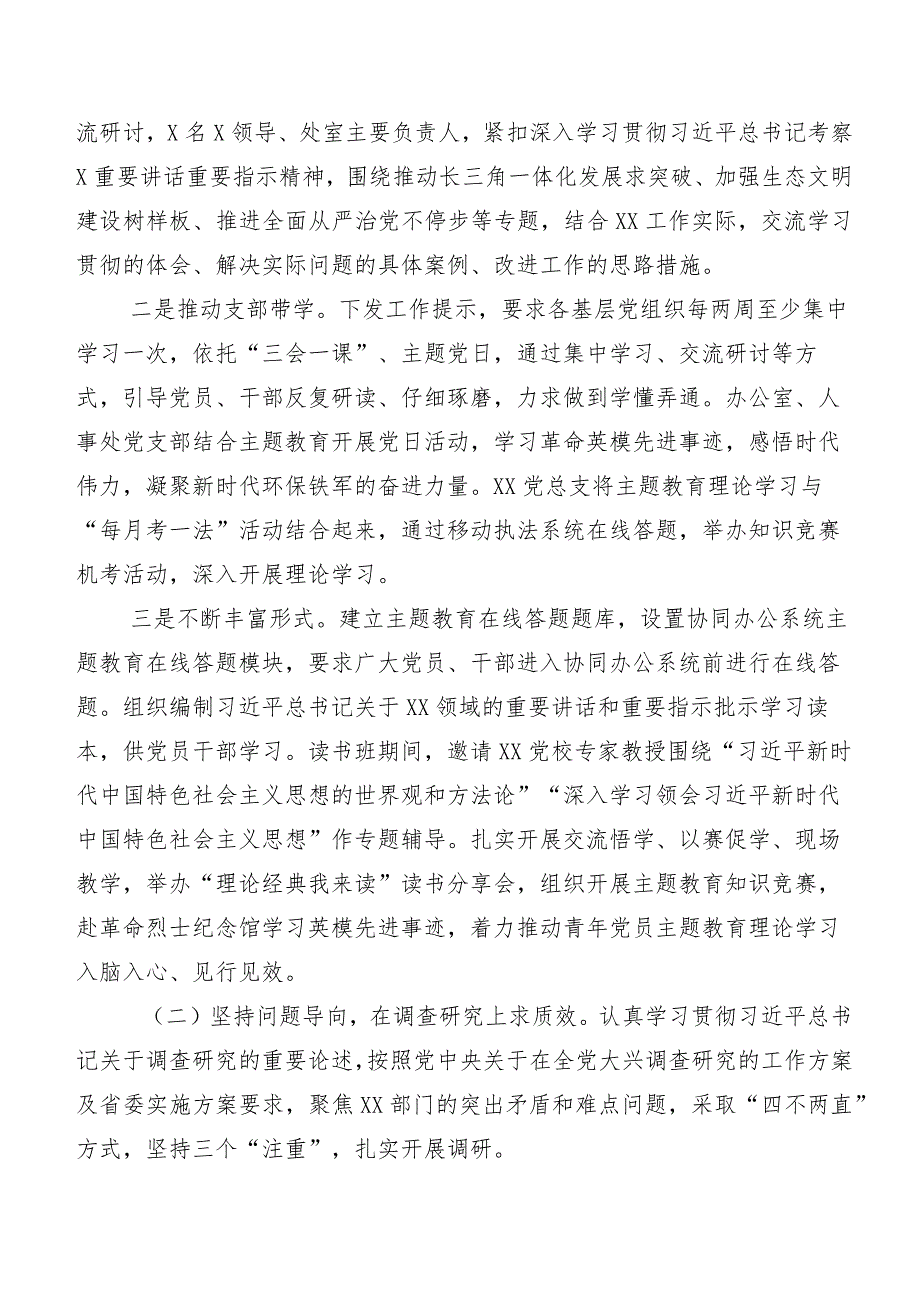 流研讨，X 名 X 领导、处室主要负责人，紧扣深入学习贯彻习近平总书记考察
X 重要讲话重要指示精神，围绕推动长三角一体化发展求突破、加强生态文明
建设树样板、推进全面从严治党不停步等专题，结合 XX 工作实际，交流学习
贯彻的体会、解决实际问题的具体案例、改进工作的思路措施。
二是推动支部带学。下发工作提示，要求各基层党组织每两周至少集中
学习一次，依托“三会一课”、主题党日，通过集中学习、交流研讨等方
式，引导党员、干部反复研读、仔细琢磨，力求做到学懂弄通。办公室、人
事处党支部结合主题教育开展党日活动，学习革命英模先进事迹，感悟时代
伟力，凝聚新时代环保铁军的奋进力量。XX 党总支将主题教育理论学习与
“每月考一法”活动结合起来，通过移动执法系统在线答题，举办知识竞赛
机考活动，深入开展理论学习。
三是不断丰富形式。建立主题教育在线答题题库，设置协同办公系统主
题教育在线答题模块，要求广大党员、干部进入协同办公系统前进行在线答
题。组织编制习近平总书记关于 XX 领域的重要讲话和重要指示批示学习读
本，供党员干部学习。读书班期间，邀请 XX 党校专家教授围绕“习近平新时
代中国特色社会主义思想的世界观和方法论”“深入学习领会习近平新时代
中国特色社会主义思想”作专题辅导。扎实开展交流悟学、以赛促学、现场
教学，举办“理论经典我来读”读书分享会，组织开展主题教育知识竞赛，
赴革命烈士纪念馆学习英模先进事迹，着力推动青年党员主题教育理论学习
入脑入心、见行见效。
（二）坚持问题导向，在调查研究上求质效。认真学习贯彻习近平总书
记关于调查研究的重要论述，按照党中央关于在全党大兴调查研究的工作方案
及省委实施方案要求，聚焦 XX 部门的突出矛盾和难点问题，采取“四不两直”
方式，坚持三个“注重”，扎实开展调研。